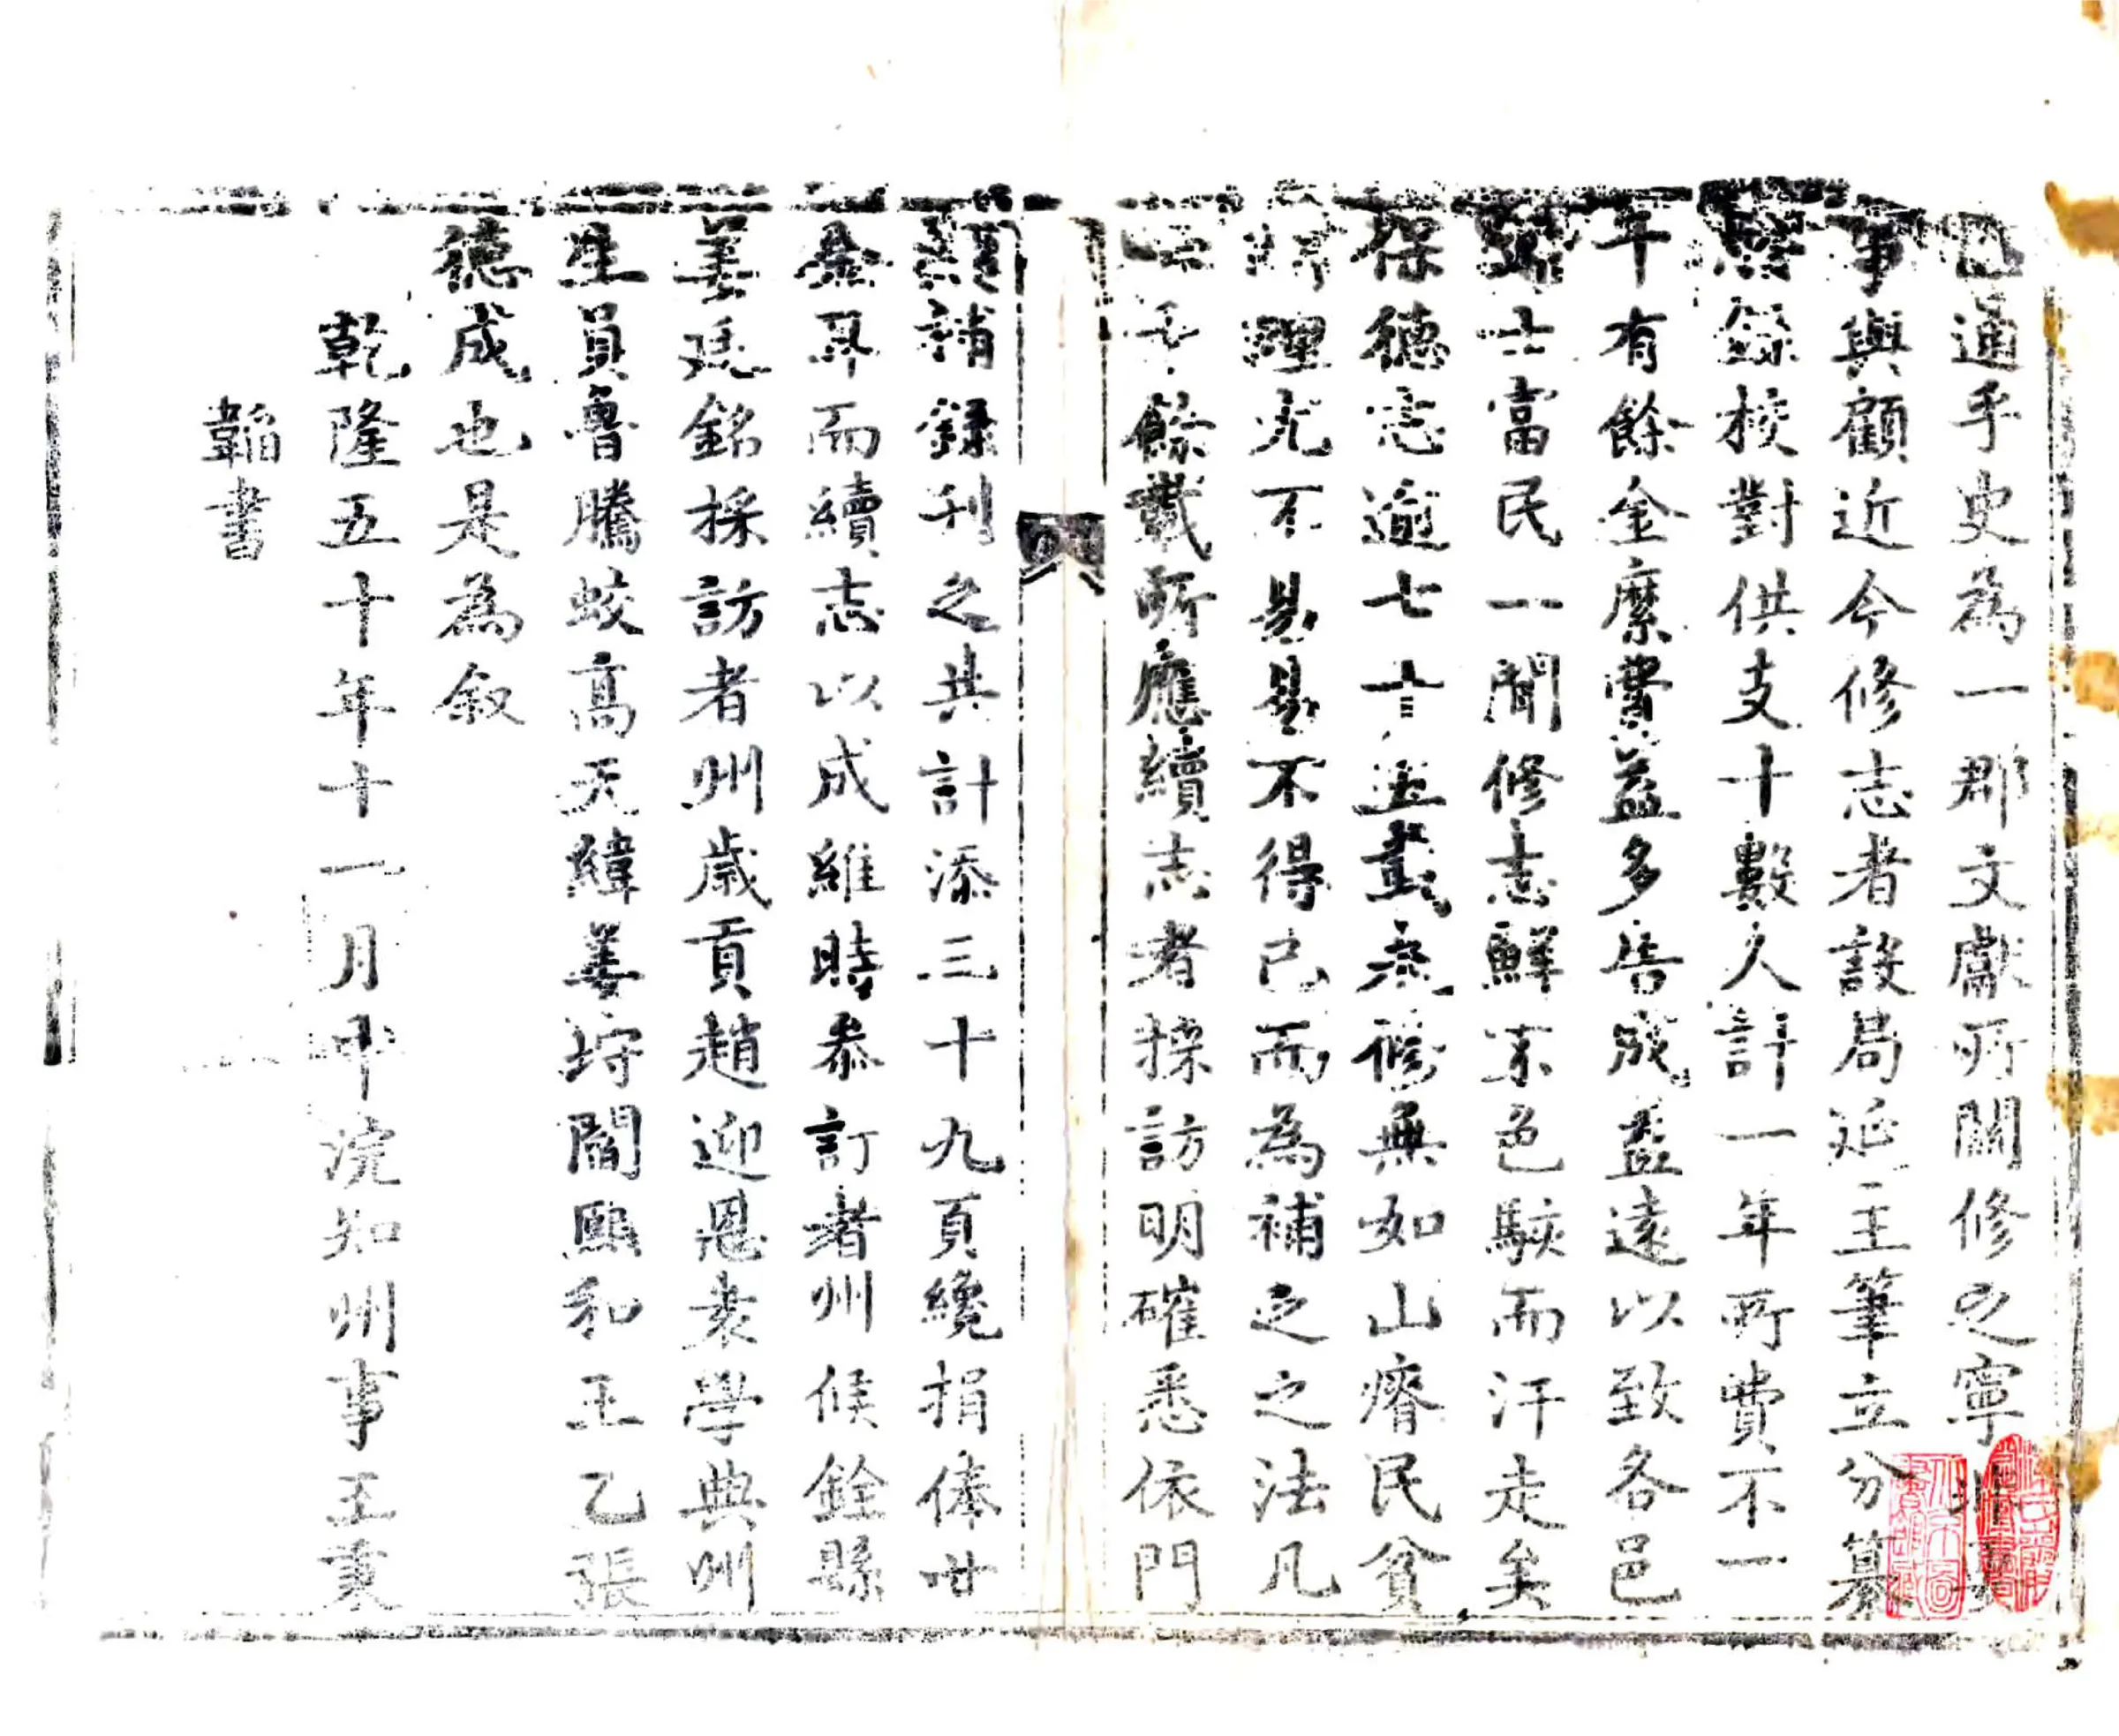 通乎史為一郡文獻所關修之寧
事與顧近今修志者設局延主筆立分纂
錄校對供支十數人計一年所費不一
年有餘金縻費益多告成益遠以致各邑
士富民一聞修志鮮不色駭而汗走矣
保德志逾七十五載矣修無如山瘠民貧
理尤不易易不得已而為補之之法凡
千餘載所應續志者採訪明確悉依門
類補錄刊之共計添三十九頁纔捐俸廿
金耳而續志以成維時叅訂者州候銓縣
姜廷銘採訪者州歲貢趙迎恩裴學典州
生員魯騰蛟高天緯姜垨閻熙和王乙張
德成也是為叙
乾隆五十年十一月中浣知州事王秉
韜書